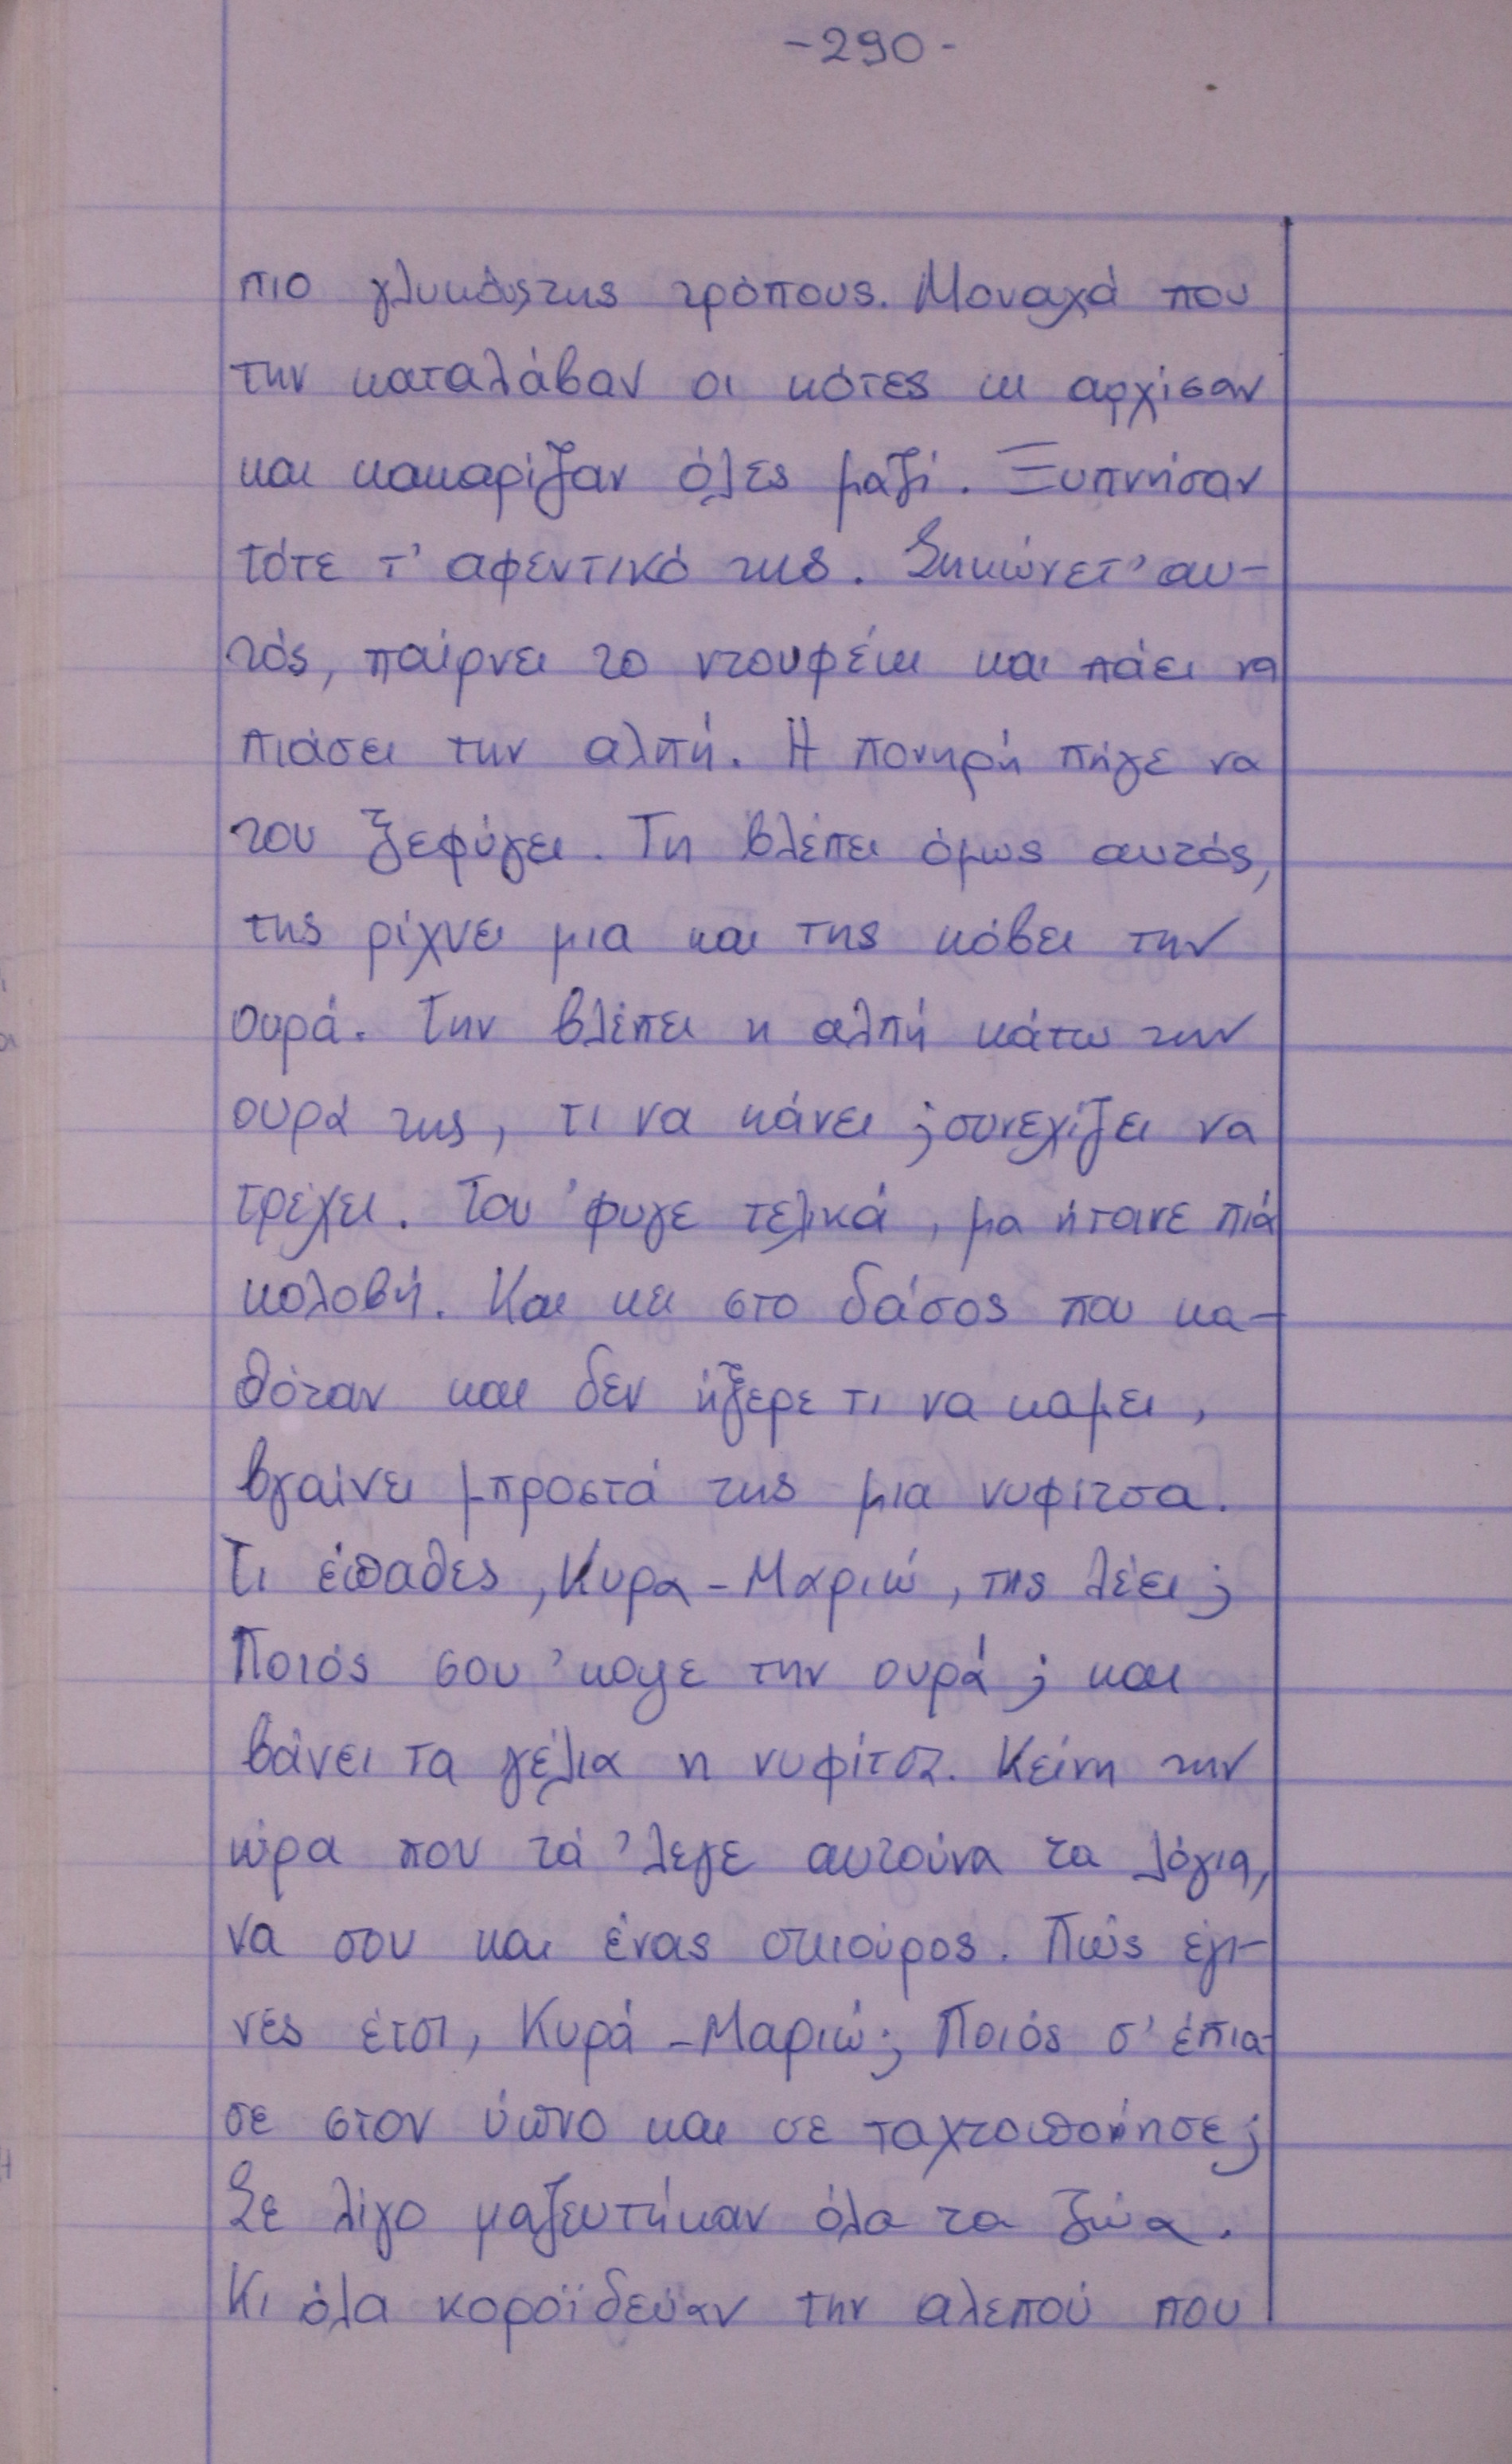 -290-
πιο γλυκούςτης τρόπους. Μοναχά που
την καταλάβαν οι κότες κι αρχίσαν
και κακαρίζαν όλες μαζί. Ξυπνήσαν
τότε τ' αφεντικό της. Σηκώνετ' αυ-
τός, παίρνει το ντουφέκι και πάει να
πιάσει την αλπή. Η πονηρή πήγε να
του ξεφύγει. Τη βλέπει όμως αυτός,
της ρίχνει μια και της κόβει την
ουρά. Την βλέπει η αλπή κάτω την
ουρά της, τι να κάνει; συνεχίζει να
τρέχει. Του 'φυγε τελικά, μα ήτανε πιά
κολοβή. Και κει στο δάσος που κα-
θόταν και δεν ήξερε τι να καμει,
βγαίνει μπροστά της μια νυφίτσα.
Τι έπαθες, Κυρα-Μαριώ, της λέει;
Ποιός σου 'κοψε την ουρά; και
βάνει τα γέλια η νυφίτσα. Κείνη την
ώρα που τά 'λεγε αυτούνα τα λόγια,
να σου και ένας σκιούρος. Πώς έγι-
νες έτσι, Κυρά-Μαριώ; Ποιός σ' έπια-
σε στον ύπνο και σε ταχτοποίησε;
Σε λίγο μαζευτήκαν όλα τα ζώα.
Κι όλα κοροϊδεύαν την αλεπού που